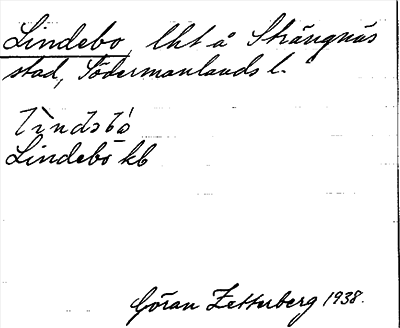 Lindebo, lht å Strängnäs
stad, Södermanlands l.
lìndsbó
Lindebo kb
Göran Zetterberg 1938.